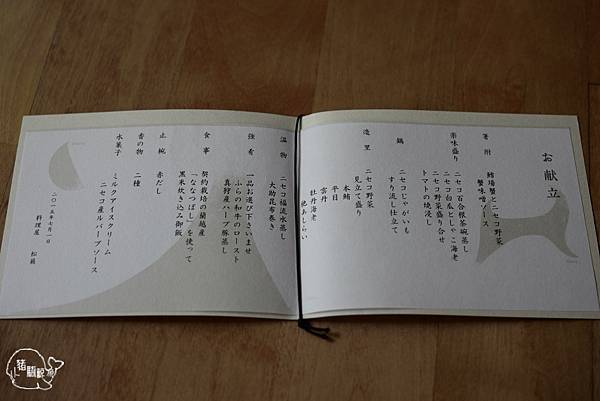 お献立
箸附
鱈場蟹とニセコ野菜
蟹味噌ソース
楽味盛り
ニセコ百合根茶碗蒸し
ニセコ白瓜としゃこ海老
ニセコ野菜盛り合せ
トマトの焼浸し
鍋
ニセコじゃがいも
すり流し仕立て
造里
ニセコ野菜
見立て盛り
本鮪
平目
雲丹
牡丹海老
他あしらい
温物
ニセコ福流水蒸し
大助昆布巻き
強肴
一品お選び下さいませ
ふらの和牛のロースト
真狩産ハーブ豚蒸し
食事
契約栽培の蘭越産
「ななつぼし」を使って
黒米炊き込み御飯
止椀
赤だし
香の物
二種
水菓子
ミルクアイスクリーム
ニセコ産ルバーブソース
二〇一五年
月一日
料理屋